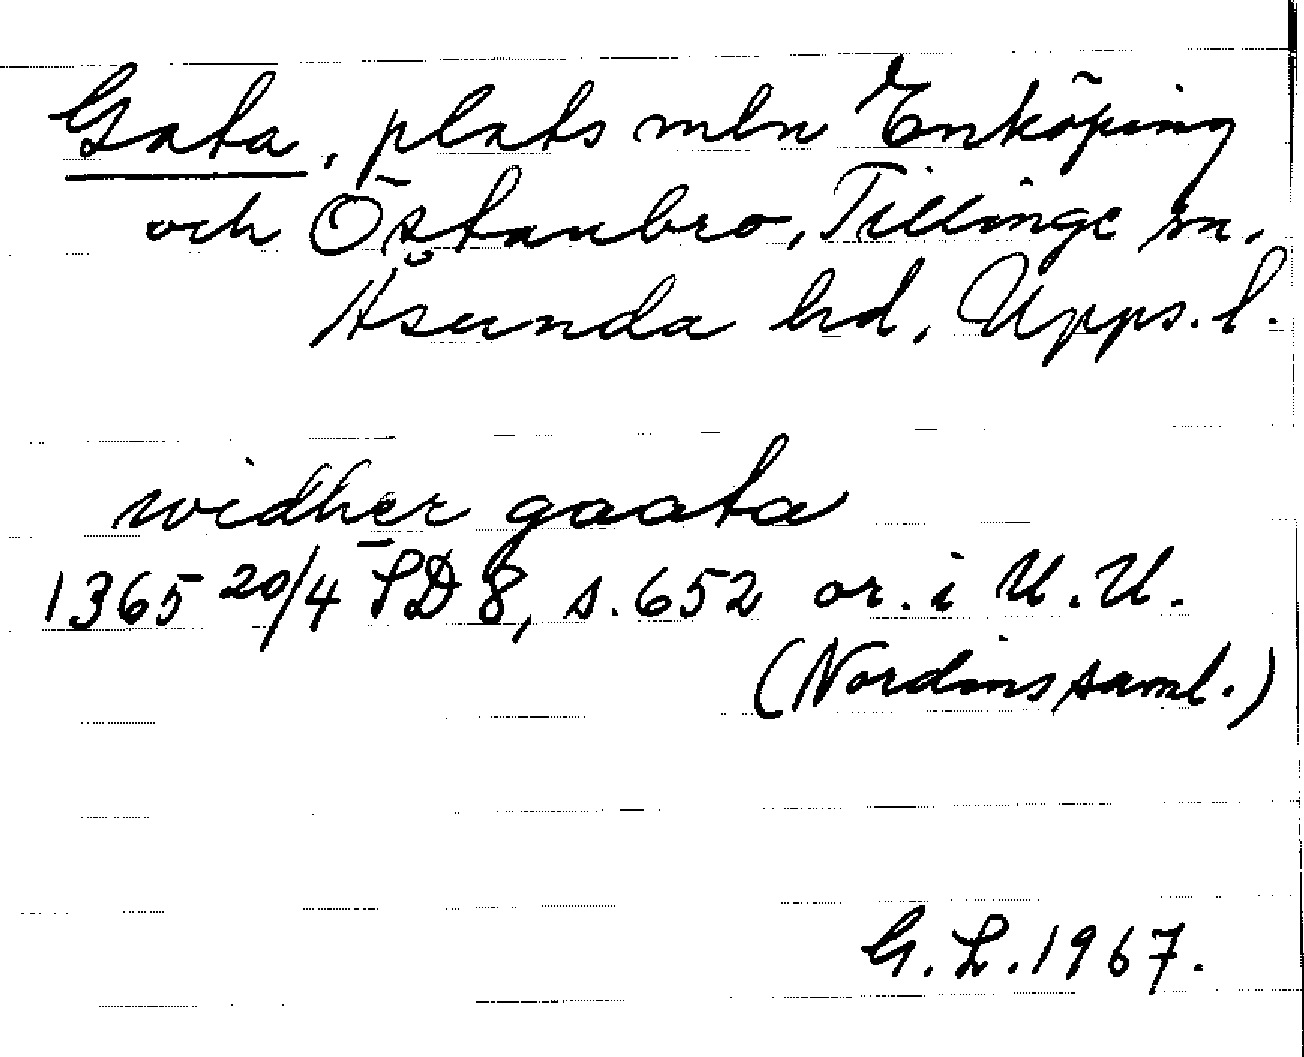 Gata, plats mln Enköping
och Östanbro, Tillinge sn.
Åsunda hd, Upps. l.
widher gaata
1365 20/4 SD 8, s. 652 or. i U.U.
(Nordins saml.)
G. L. 1967.